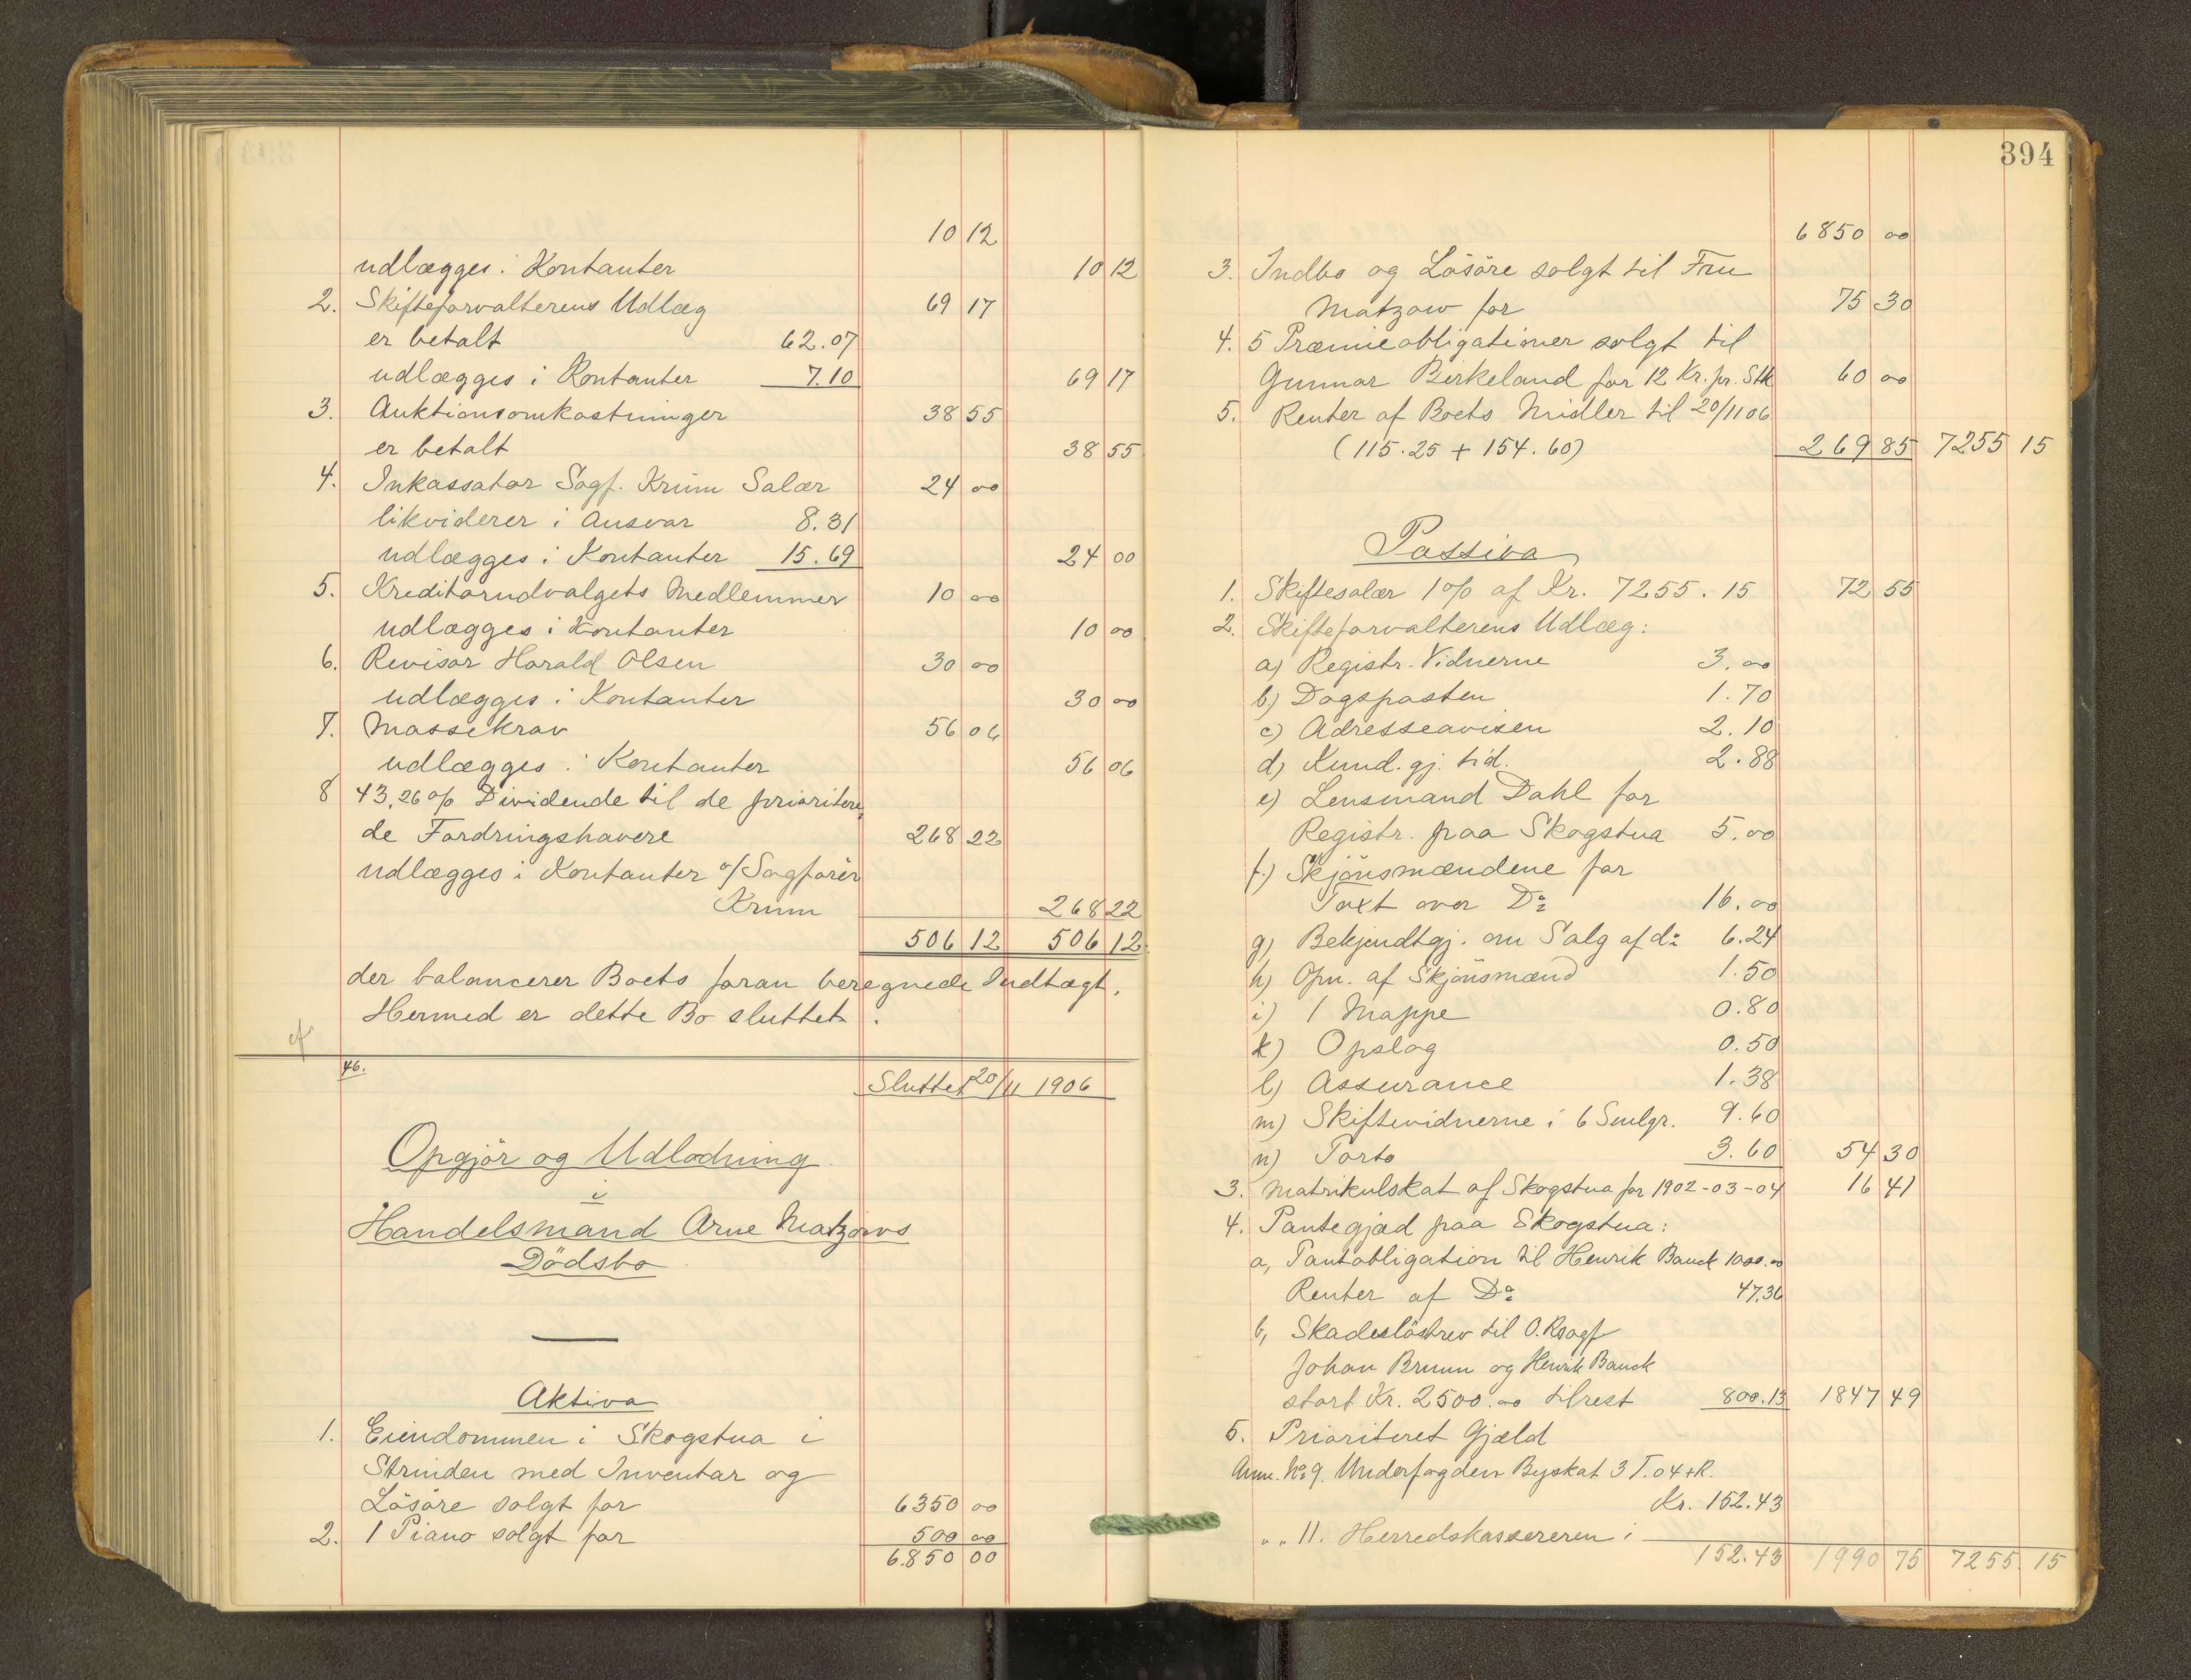 10 12
udlægges i Kontanter 10 12
2. Skifteforvalterens Udlæg 69 17
er betalt 62.07
udlægges i Kontanter 7.10 69 17
3. Auktionsomkostninger 38 55
er betalt 38 55
4. Inkassator Sagf. Krum Salær 24 00
likviderer i Ansvar 8.31
udlægges i Kontanter 15.69 24 00
5. Kreditorudvalgets Medlemmer 10 00
udlægges i Kontanter 10 00
6. Revisor Harald Olsen 30 00
udlægges i Kontanter 30 00
7. Massekrav 56 06
udlægges i Kontanter 56 06
8 43,26 % Dividende til de prioritere,
de Fordringshavere 268 22
udlægges i Kontanter v/ Sagfører
Krum 268 22
506 12 506 12
der balancerer Boets foran beregnede Indtægt.
Hermed er dette Bo sluttet.
cf
46.
Sluttet 20/11 1906
Opgjör og Udlodning
i
Handelsmand Arne Matzows
Dödsbo
Aktiva
1. Eiendommen i Skogstua i
Strinden med Inventar og
Lösöre solgt for 6350 00
2. 1 Piano solgt for 500 00
6.850 00
394
6850 00
3. Indbo og Lösöre solgt til Fru
Matzow for 75 30
4. 5 Præmieobligationer solgt til
Gunnar Birkeland for 12 Kr. pr. Stk 60 00
5. Renter af Boets Midler til 20/11 06
(115.25 + 154.60) 269 85 7255 15
Passiva
1. Skiftesalær 1 % af Kr. 7255.15 72 55
2. Skifteforvalterens Udlæg:
a) Registr. Vidnerne 3.00
b) Dagsposten 1.70
c) Adresseavisen 2.10
d) Kund.gj. tid. 2.88
e) Lensmand Dahl for
Registr. paa Skogstua 5.00
f.) Skjönsmændene for
Taxt over Do 16.00
g) Bekjendtgj. om Salg af do 6.24
h) Opn. af Skjönsmænd 1.50
i) 1 Mappe 0.80
k) Opslag 0.50
l) Assurance 1.38
m) Skiftevidnerne i 6 Smlgr. 9.60
n) Porto 3.60 54 30
3. Matrikulskat af Skogstua for 1902-03-04 16 41
4. Pantegjæld paa Skogstua:
a, Pantobligation til Henrik Bauck 1000.00
Renter af Do 47,36
b, Skadeslösbrev til O.Rsagf
Johan Bruun og Henrik Bauck
stort Kr. 2500.00 tilrest 800.13 1847 49
5. Prioriteret Gjæld
Anm. No 9. Underfogden Byskat 3 T. 04 + R.
Kr. 152.43
" " 11. Herredskassereren i
152.43 1990 75 7255.15